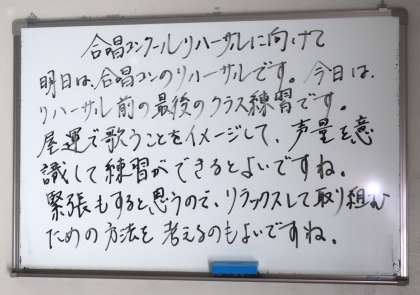 合唱コンクールリハーサルに向けて
明日は、合唱コンのリハーサルです。今日は、
リハーサル前の最後のクラス練習です。
屋運で歌うことをイメージして、声量を意
識して練習ができるとよいですね。
緊張もすると思うので、リラックスして取り組む
ための方法を考えるのもよいですね。